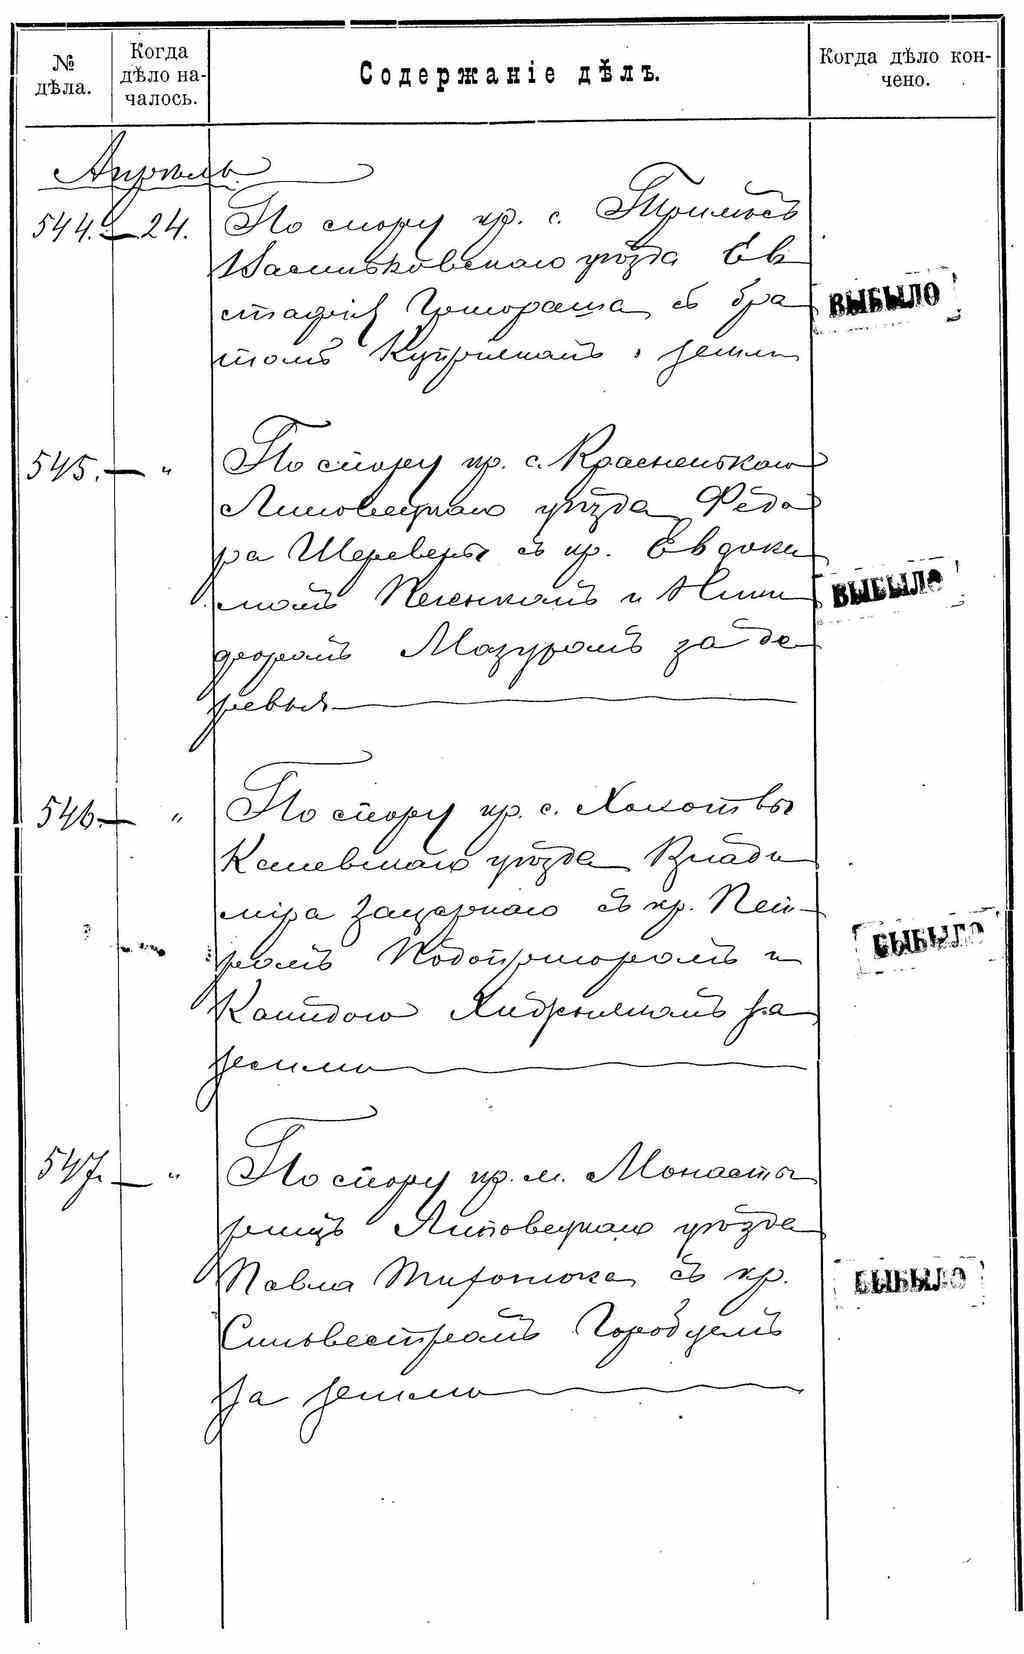 № дѣла.
Когда дѣло на-
чалось.
Содержаніе дѣлъ.
Когда дѣло кон-
чено.
Апрѣль
544. 24. По спору кр. с. Трилѣсъ
Васильковскаго уѣзда Ев
стафія Григораша съ бра
томъ Купріяномъ земли
ВЫБЫЛО
545. — „ По спору кр. с. Красненькаго
Липовецкаго уѣзда Ѳедо
ра Шереверы съ кр. Евдоки
момъ и Ники
форомъ Мазуромъ за де
ревья
ВЫБЫЛО
546. — „ По спору кр. с. Хохотвы
Каневскаго уѣзда Влади
міра Зацернаго съ кр. Пет-
ромъ Подопригоромъ и
за
землю
ВЫБЫЛО
547. — „ По спору кр. м. Монасты
рищъ Липовецкаго уѣзда
Павла съ кр.
Сильвестромъ Городцемъ
за землю
ВЫБЫЛО